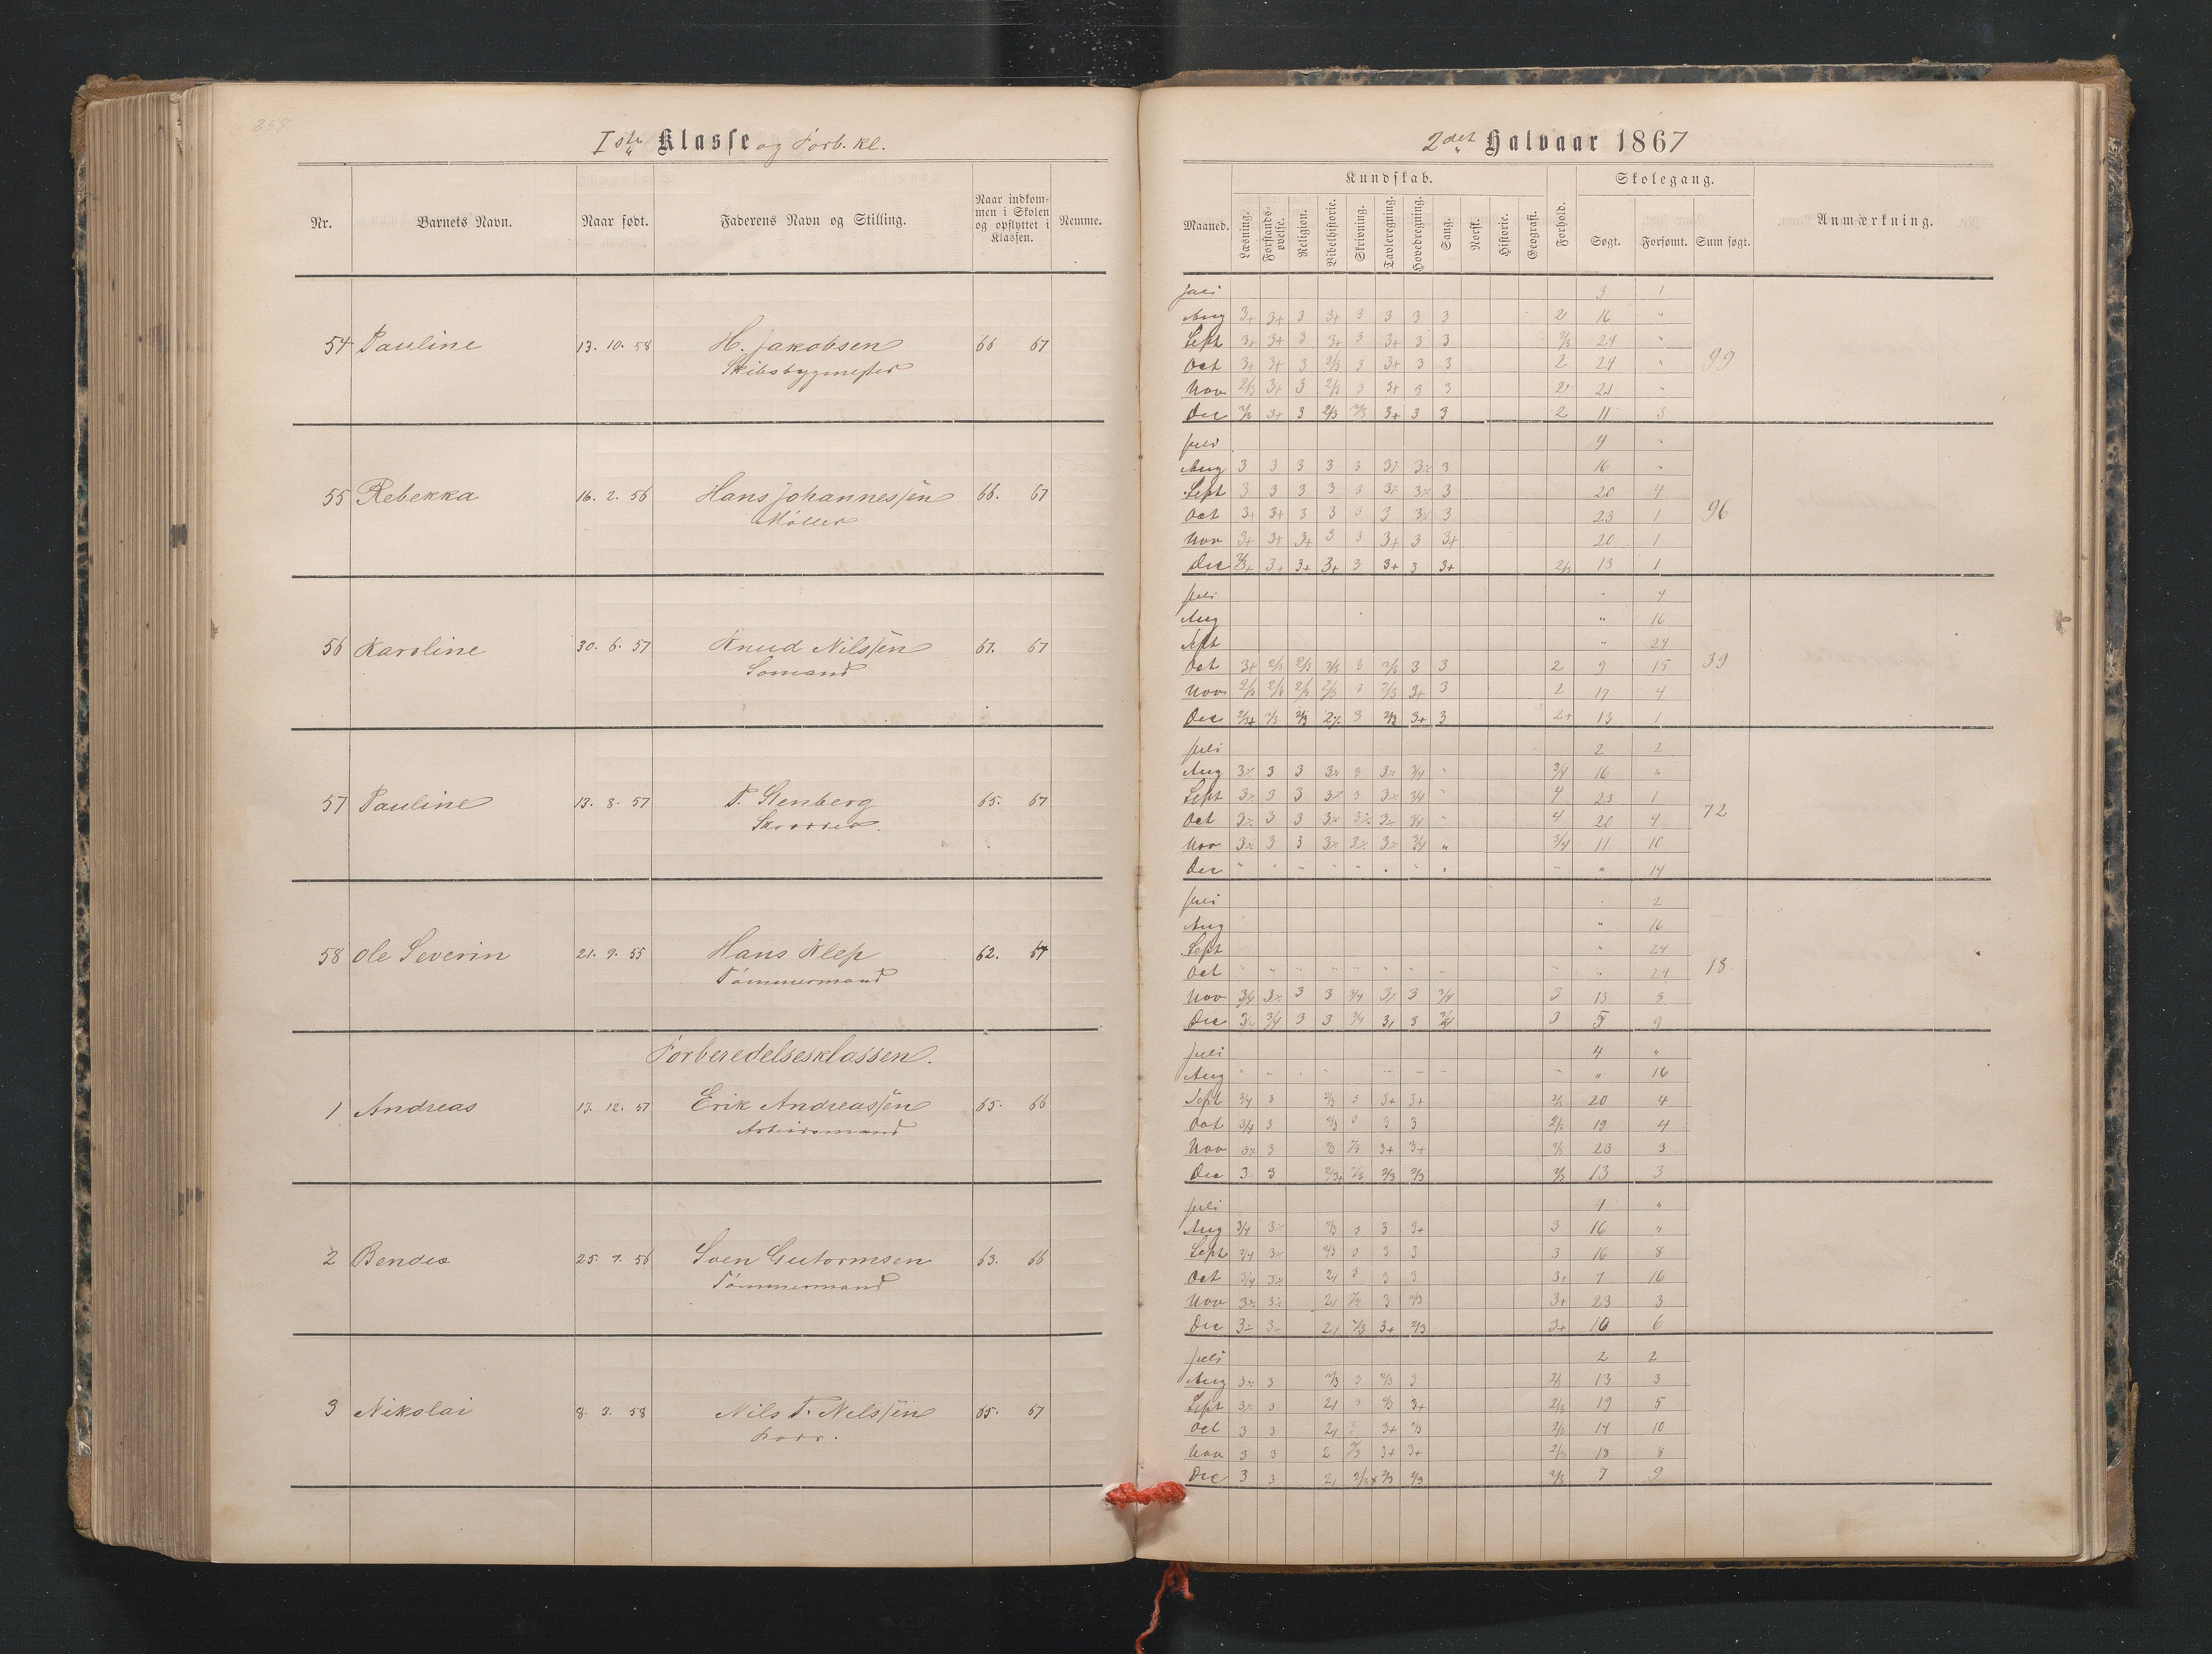 258
Iste Klasse og Forb. kl.
Nr. Barnets Navn. Naar født. Faderens Navn og Stilling. Naar indkommen i Skolen og opflyttet i Klassen. Nemme.
54 Pauline 13. 10. 58 H. Jakobsen 66 67
Skibsbygmester
55 Rebekka 16. 2. 56 Hans Johannessen 66. 67
Møller
56 Karoline 30. 6. 57 Knud Nilssen 67. 67
Sømand
57 Pauline 13. 8. 57 T. Stenberg 65. 67
Skrædder.
58 Ole Severin 21. 9. 55 Hans Klep 62. 67
Tømmermand
Forberedelsesklassen.
1 Andreas 13. 12. 57 Erik Andreassen 65. 66
Arbeidsmand
2 Bendes 25. 7. 56 Soen Gutormsen 63. 66
Tømmermand
3 Nikolai 8. 3. 58 Nils T. Nilssen 65. 67
2det Halvaar 1867
Kundskab. Skolegang.
Maaned. Læsning. Forstandsøvelse. Religion. Bibelhistorie. Skrivning. Tavleregning. Hovedregning. Sang. Norsk. Historie. Geografi. Forhold. Søgt. Forsømt. Sum søgt. Anmærkning.
Juli 3 1
Aug 3+ 3+ 3 3+ 3 3 3 3 2 16 "
Sept 3+ 3+ 3 3+ 3 3+ 3 3 2/3 24 "
Oct 3+ 3+ 3 2/3 3 3+ 3 3 2 24 " 99
Nov 2/3 3+ 3 2/3 3 3+ 3 3 2 21 "
Dec 2/3 3+ 3 2/3 2/3 3+ 3 3 2 11 3
Juli 4 "
Aug 3 3 3 3 3 3 16 "
Sept 3 3 3 3 3 3 20 4
Oct 3+ 3+ 3 3 3 3 3 23 1 96
Nov 3+ 3+ 3+ 3 3 3+ 3 3+ 20 1
Dec 3+ 3+ 3+ 3 3+ 3 3+ 2/3 13 1
Juli " 4
Aug " 16
Sept " 24
Oct 3+ 2/3 2/3 2/3 3 2/3 3 3 2 9 15 39
Nov 2/3 2/3 2/3 2/3 3 2/3 3+ 3 2 17 4
Dec 2/3+ 2/3 2/3 3 2/3 3+ 3 2+ 13 1
Juli 2 2
Aug 3 3 3 3/4 3/4 16 "
Sept 3 3 3 3/4 4 23 1
Oct 3 3 3/4 4 20 4 72
Nov 3 3 3/4 " 3/4 11 10
Dec " " " " " " " " " " 14
Juli 2
Aug " 16
Sept " 24
Oct " " " " " " " " " " 24 18
Nov 3/4 3 3 3/4 3 3/4 3 13 8
Dec 3/4 3/4 3 3 3/4 3 3/4 3 5 9
Juli 4 "
Aug " " " " " " " " " 16
Sept 3/4 3 2/3 3 3+ 3+ 2/3 20 4
Oct 3/4 3 2/3 3 3 3 2/3 19 4
Nov 3 2/3 2/3 3+ 3+ 2/3 23 3
Dec 3 3 2/3+ 2/3 2/3 2/3 2/3 13 3
Juli 4 "
Aug 3/4 2/3 3 3 3+ 3 16 "
Sept 3/4 2/3 3 3 3 3 16 8
Oct 3/4 3 3 3 3+ 7 16
Nov 2/3 3 2/3 3+ 23 3
Dec 2/3 3+ 2/3 3+ 16 6
Juli 2 2
Aug 3 2/3 3 2/3 3 2/3 13 3
Sept 3 3 2/3 3+ 2/3 19 5
Oct 3 3 3+ 2/3 2/3 14 10
Nov 3 3 2 2/3 3+ 3+ 2/3 18 8
Dec 3 3 2/3 2/3 2/3 2/3 7 9